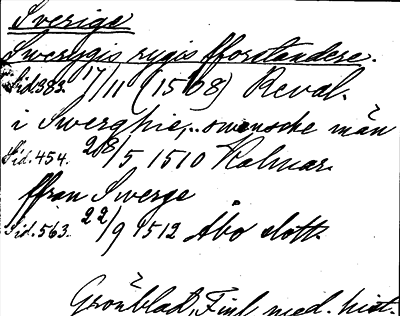 Sverige
Swerygis rygis fforstandere.
Sid. 383. 17/11 (1508) Reval.
i Swerghie,.. swensche män
Sid. 454. 28/5 1510 Kalmar.
ffran Swerge
Sid. 563. 22/9 1512 Åbo slott.
Grönblad, Finl. med. hist.